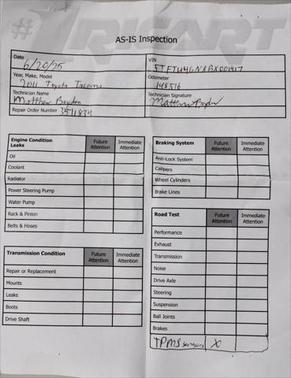 #1 RICART
AS-IS Inspection
Date
6/20/25
VIN
Year, Make, Model
2011 Toyota Tacoma
Odometer
148516
Technician Name
Matthew
Technician Signature
Matthew
Repair Order Number
Engine Condition
Leaks
Future Attention
Immediate Attention
Oil
Coolant
Radiator
Power Steering Pump
Water Pump
Rack & Pinion
Belts & Hoses
Transmission Condition
Future Attention
Immediate Attention
Repair or Replacement
Mounts
Leaks
Boots
Drive Shaft
Braking System
Future Attention
Immediate Attention
Anti-Lock System
Calipers
Wheel Cylinders
Brake Lines
Road Test
Future Attention
Immediate Attention
Performance
Exhaust
Transmission
Noise
Drive Axle
Steering
Suspension
Ball Joints
Brakes
TPMS sensors X